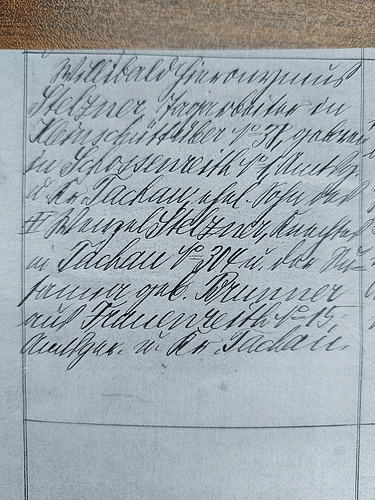 Willibald Hieronymus
Stelzner, Tagarbeiter in
Kleinschüttüber No 37, geboren
in Schossenreith No 1, Amtsb.
u. Kr. Tachau, ehel. Sohn des
Wenzel Stelzner,
in Tachau No 304 u. der
geb. Brunner
aus Frauenreith No 15,
Amtsger. u. Kr. Tachau.